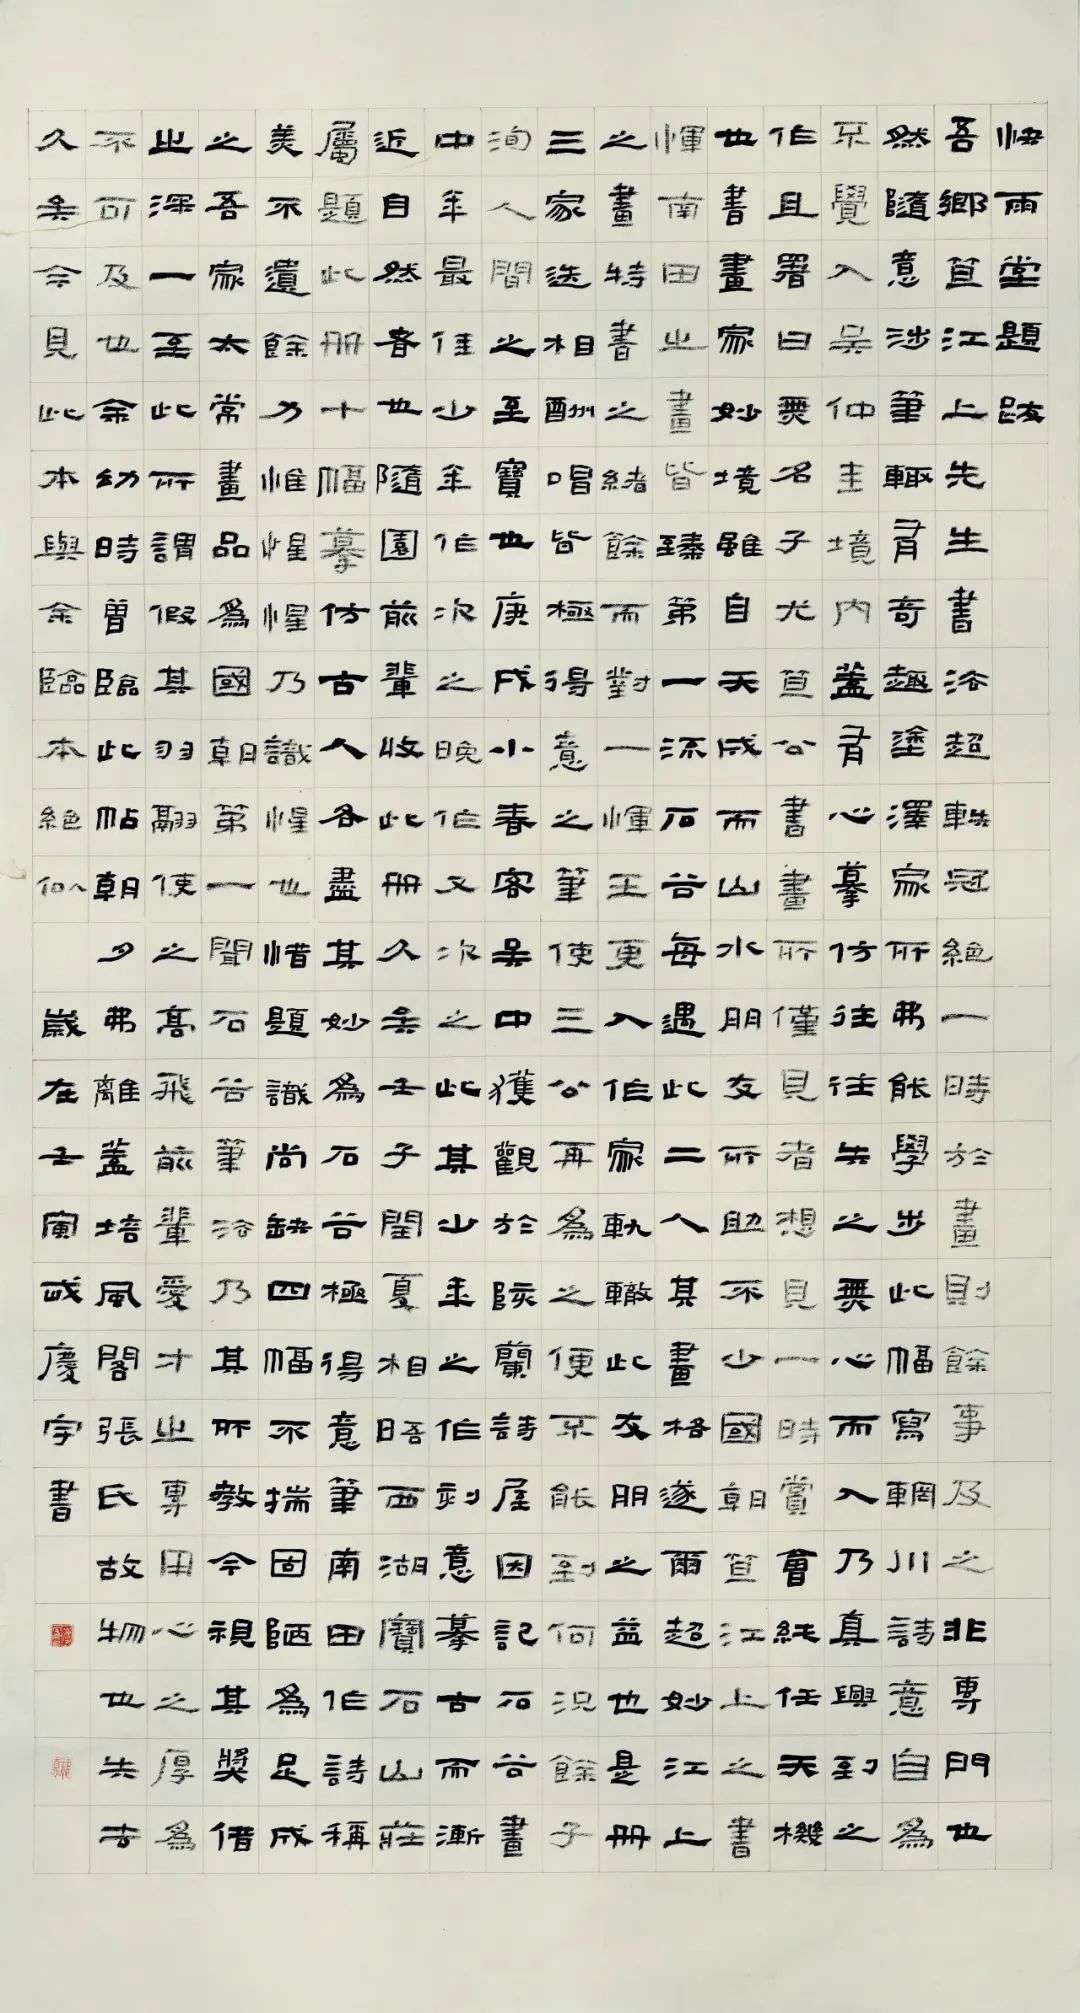 快雨堂題跋
吾鄉笪江上先生書法超軼冠絕一時於畫則餘事及之非專門也
然隨意涉筆輒有奇趣塗澤家所弗能學步此幅寫輞川詩意自為
不覺入吳仲圭境內蓋有心摹仿往往失之無心而入乃真興到之
作且署曰無名子尤笪公書畫所僅見者想見一時賞會純任天機
也書畫家妙境雖自天成而山水朋友所助不少國朝笪江上之書
惲南田之畫皆臻第一流石谷每遇此二人其畫格遂爾超妙江上
之畫特書之緒餘而對一惲王更入作家軌轍此友朋之益也是冊
三家迭相酬唱皆極得意之筆使三公再為之便不能到何況餘子
洵人間之至寶也庚戌小春客吳中獲觀於陔蘭詩屋因記石谷畫
中年最佳少年作次之晚作又次之此其少年之作刻意摹古而漸
近自然者也隨園前輩收此冊久矣壬子閏夏相晤西湖寶石山莊
屬題此冊十幅摹仿古人各盡其妙為石谷極得意筆南田作詩稱
美不遺餘力惟惺惺乃識惺也惜題識尚缺四幅不揣固陋為足成
之吾家太常畫品為國朝第一聞石谷筆法乃其所教今視其獎借
之深一至此所謂假其羽翮使之高飛前輩愛才之專用心之厚為
不可及也余幼時曾臨此帖朝夕弗離蓋培風閣張氏故物也失去
久矣今見此本與余臨本絕似 歲在壬寅武慶宇書